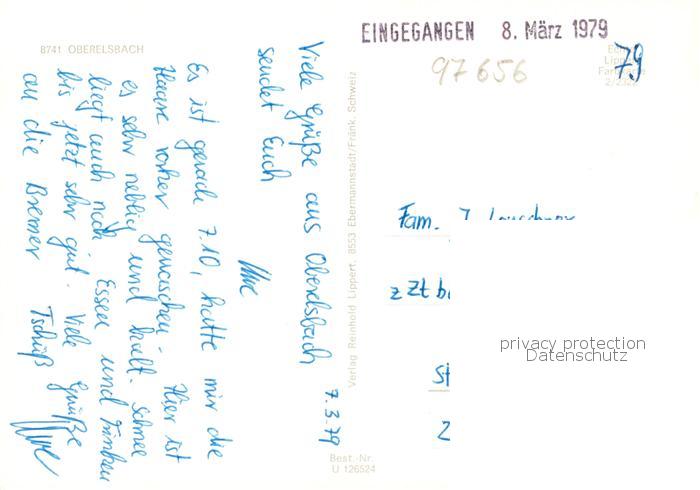 8741 OBERELSBACH
EINGEGANGEN 8. März 1979
97656
79
Viele Grüße aus Oberelsbach
sendet Euch
Uwe
7.3.79
Es ist gerade 7.10, hatte mir die
Haare vorher gewaschen. Hier ist
es sehr neblig und kalt. Schnee
liegt auch noch. Essen und Trinken
bis jetzt sehr gut. Viele Grüße
an die Bremer Tschüß
Uwe
Verlag Reinhold Lippert, 8553 Ebermannstadt/Fränk. Schweiz
Best.-Nr.
U 126524
Fam.
z Zt
privacy protection
Datenschutz